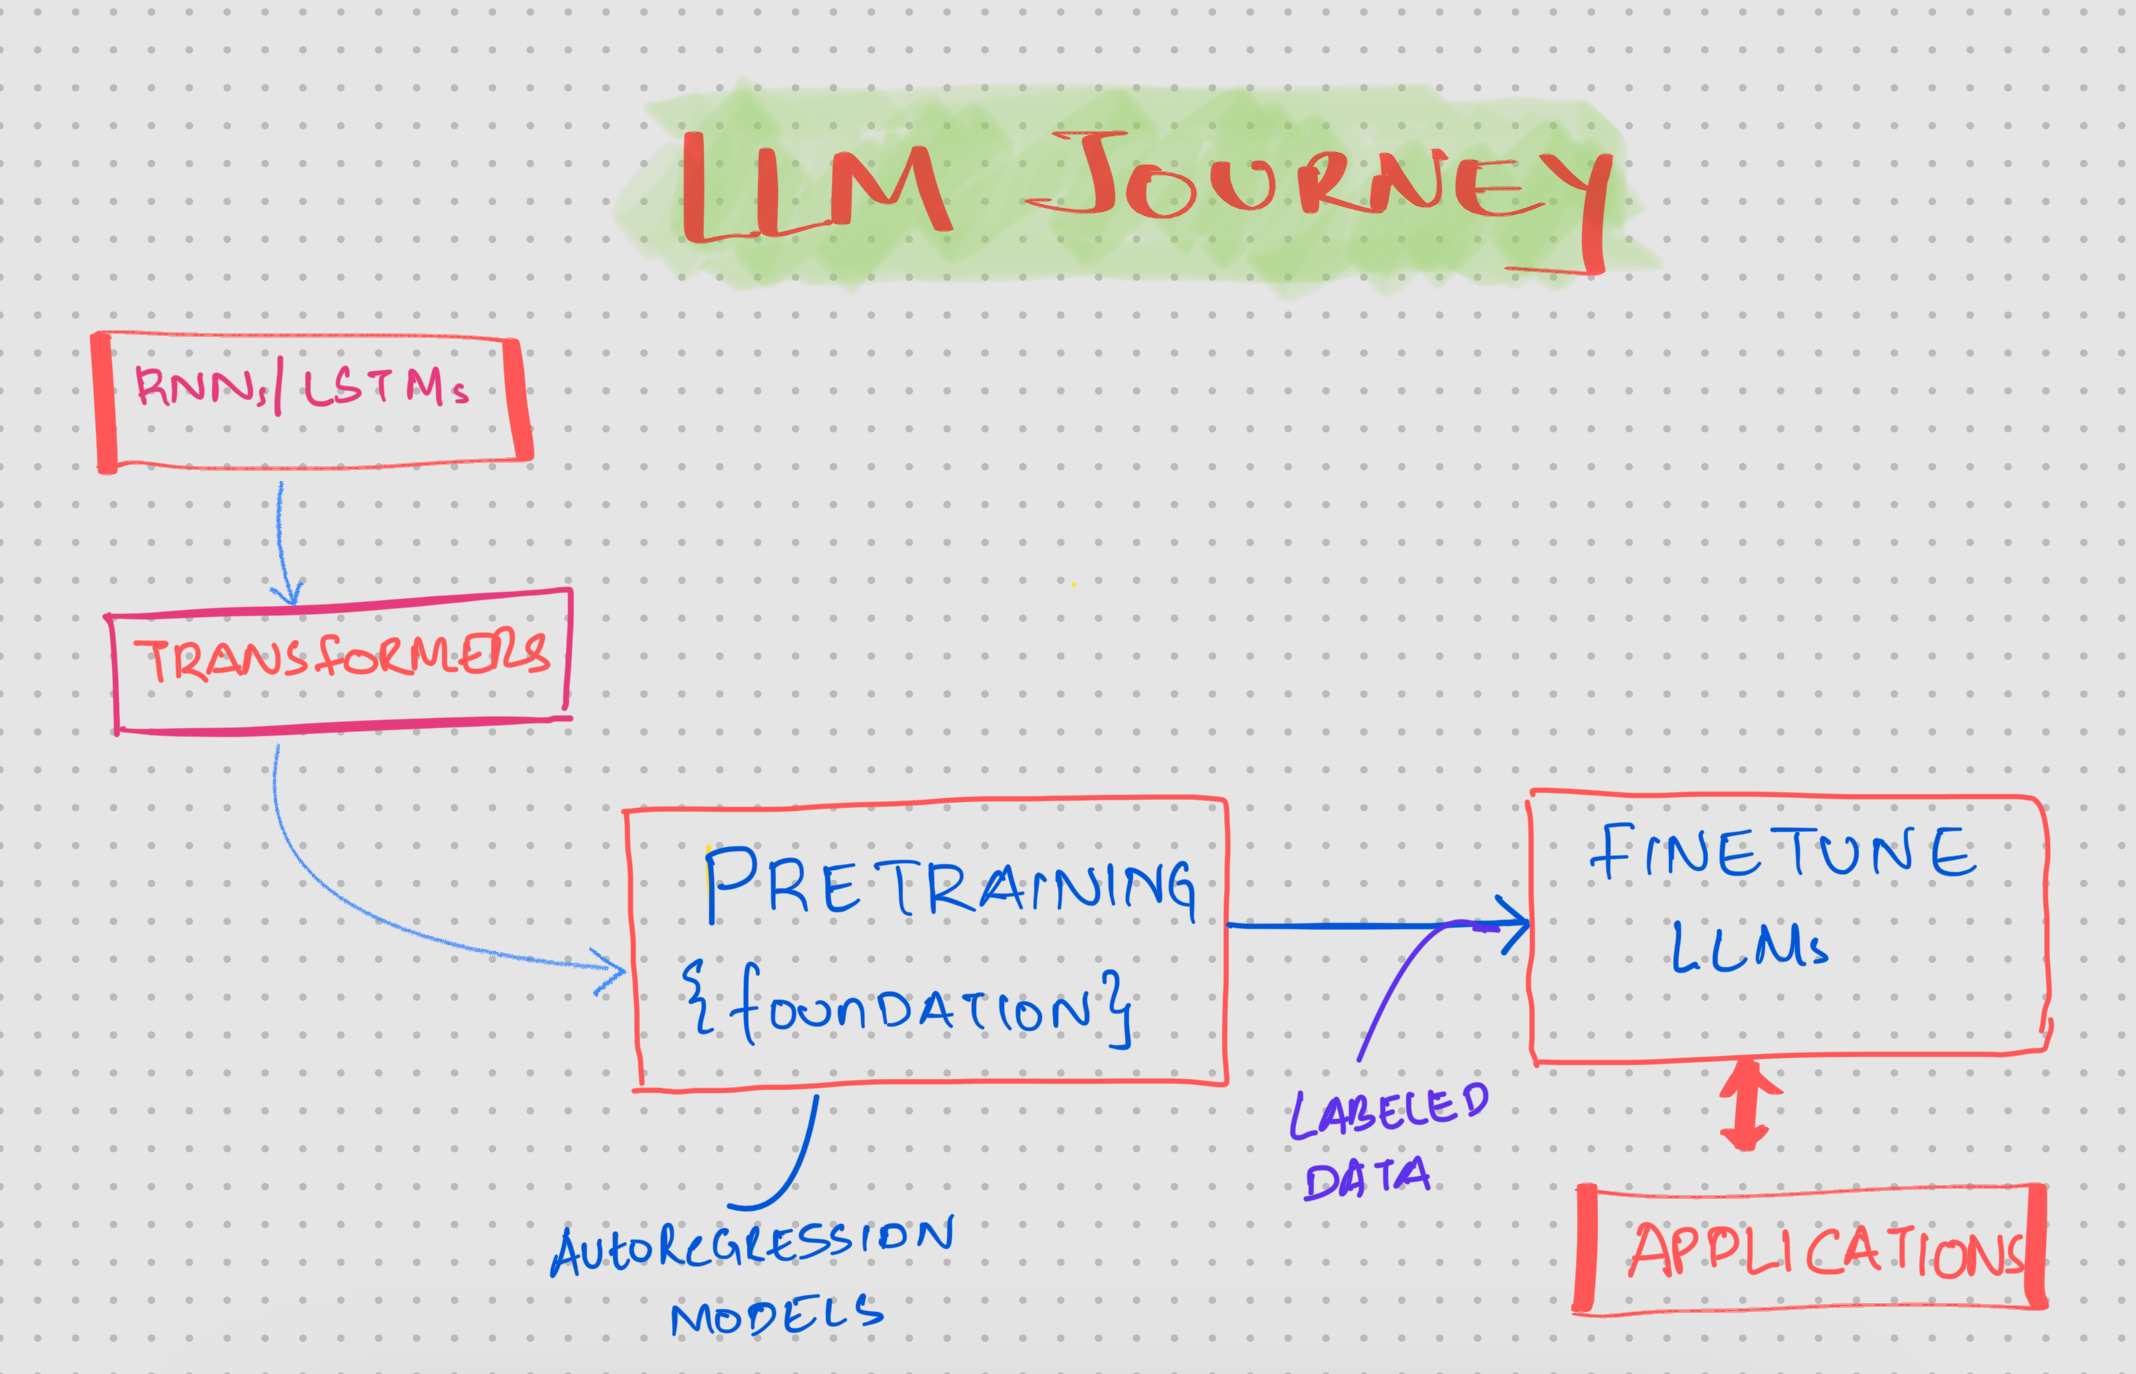 LLM JOURNEY
RNNs/LSTMs
TRANSFORMERS
PRETRAINING
{foundation}
AUTOREGRESSION
MODELS
LABELED
DATA
FINETUNE
LLMs
APPLICATIONS